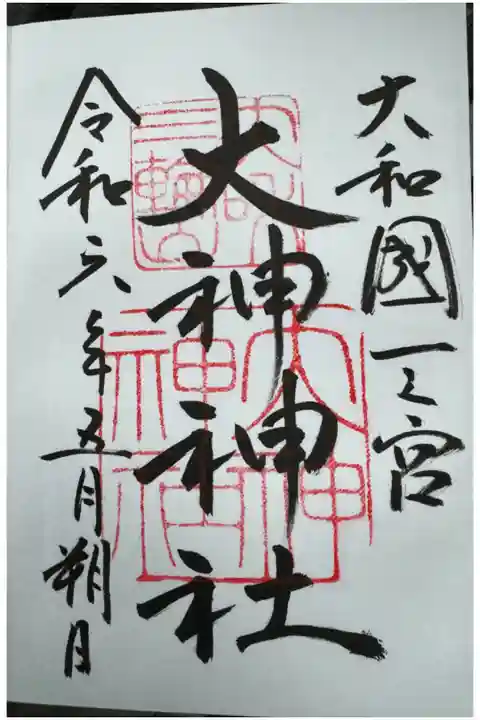 大和國一之宮
大神神社
令和六年五月朔日
三輪明神
大神神社